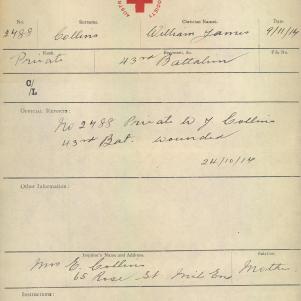 No.
Surname.
Christian Names.
Date.
2488 Collins William James 9/11/17
Rank.
Regiment, &c.
File No.
Private 43rd Battalion
C/L
OFFICIAL REPORTS:
No 2488 Private W J Collins
43rd Bat. wounded
24/10/17
Other Information:
Inquirer's Name and Address.
Relation.
Mrs E. Collins
65 Rose St Mile End Mother
Instructions: